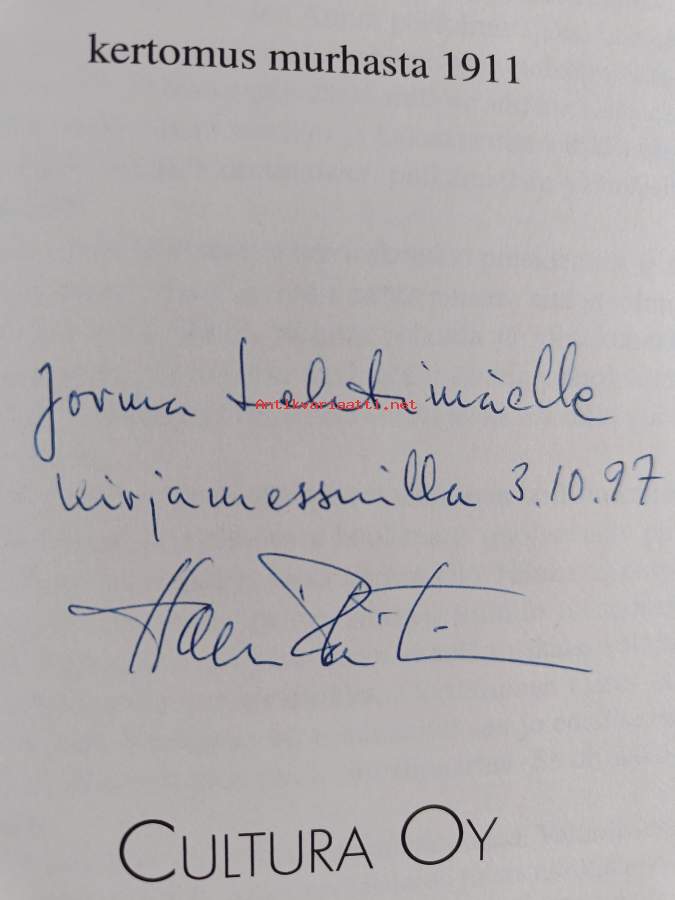 kertomus murhasta 1911
Jorma Lehtimäelle
Antikvariaatti.net
kirjamessuilla 3.10.97
CULTURA OY